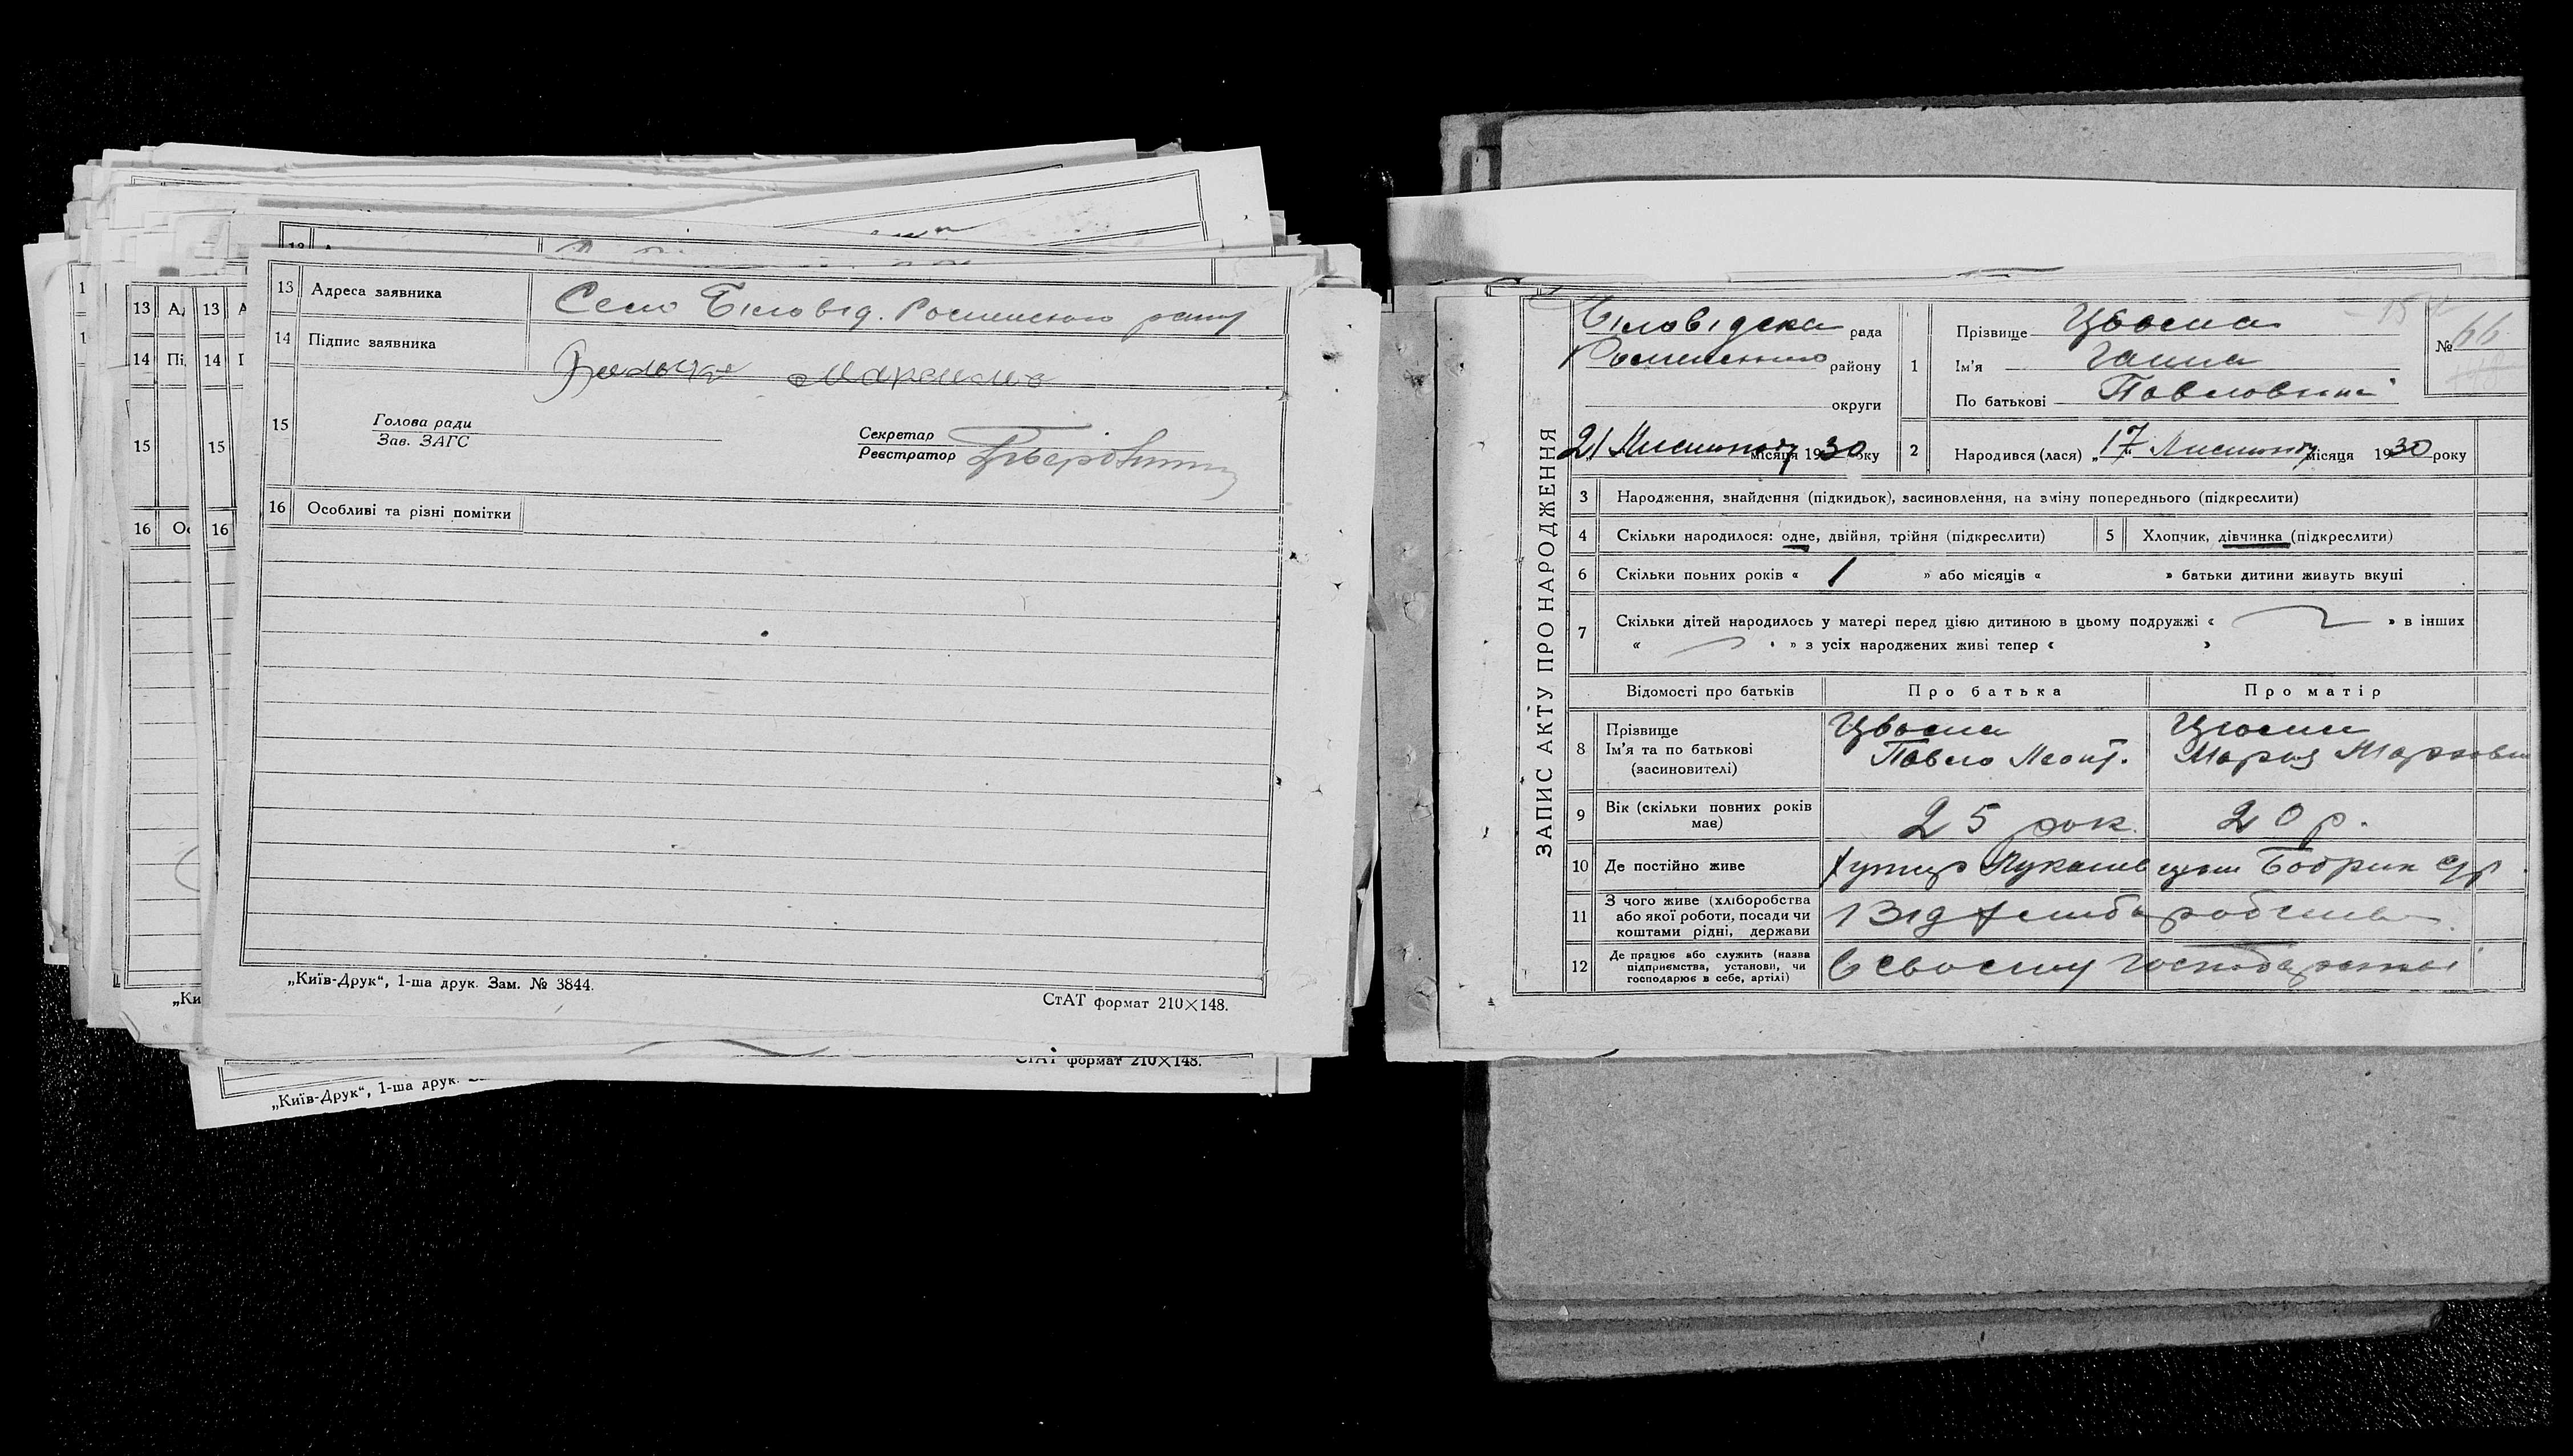 13 Адреса заявника Село Біловід. Роменського рену
14 Підпис заявника
15 Голова ради
Зав. ЗАГС
Секретар
Реєстратор
16 Особливі та різні помітки
„Київ-Друк“, 1-ша друк. Зам. № 3844.
СтАТ формат 210×148.
СтАТ формат 210×148.
„Київ-Друк“, 1-ша друк.
13 13
14 Пі 14
15 15
16 16
„Ки
ЗАПИС АКТУ ПРО НАРОДЖЕННЯ
Біловідска рада
Роменського району
округи
21 Листопаду місяця 1930 року
1 Прізвище
Ім'я Ганна
По батькові Павловна
№ 66
2 Народився (лася) „17“ Листопаду місяця 1930 року
3 Народження, знайдення (підкидьок), засиновлення, на зміну попереднього (підкреслити)
4 Скільки народилося: одне, двійня, трійня (підкреслити)
5 Хлопчик, дівчинка (підкреслити)
6 Скільки повних років « 1 » або місяців « » батьки дитини живуть вкупі
7 Скільки дітей народилось у матері перед цією дитиною в цьому подружжі « » в інших
« » з усіх народжених живі тепер « »
Відомості про батьків Про батька Про матір
8 Прізвище
Ім'я та по батькові Павло Леонт. Мария
(засиновителі)
9 Вік (скільки повних років має) 25 рок. 20 р.
10 Де постійно живе Хутир Бобрик с/р
11 З чого живе (хліборобства або якої роботи, посади чи коштами рідні, держави Від
12 Де працює або служить (назва підприємства, установи, чи господарює в себе, артілі) В своєму господарстві